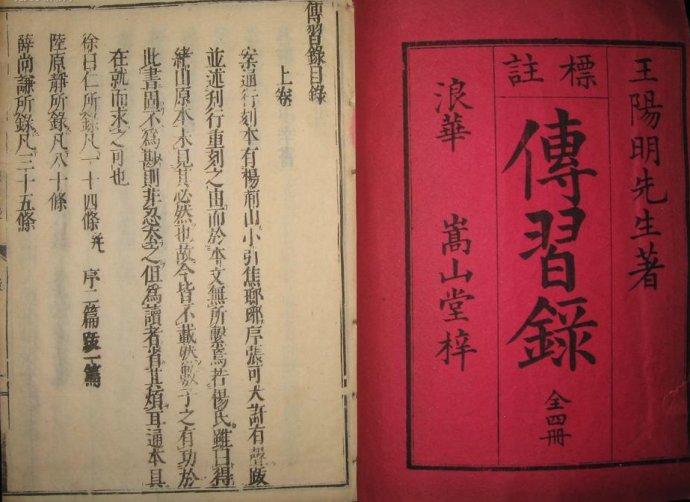 王陽明先生著
標註
傳習錄
全四冊
浪華 嵩山堂梓
傳習錄目錄
上卷
案通行刻本有楊荊山小引焦瑯琊序張可大許有聲跋
並述刊行重刻之由而於本文無所繫焉若楊氏雖曰得
緒山原本未見其必然也故今皆不載然數子之有功於
此書固不為尠則非忍去之但為讀者省其煩耳通本具
在就而求之可也
徐曰仁所錄凡一十四條 并 序二篇跋一篇
陸原靜所錄凡八十條
薛尚謙所錄凡三十五條